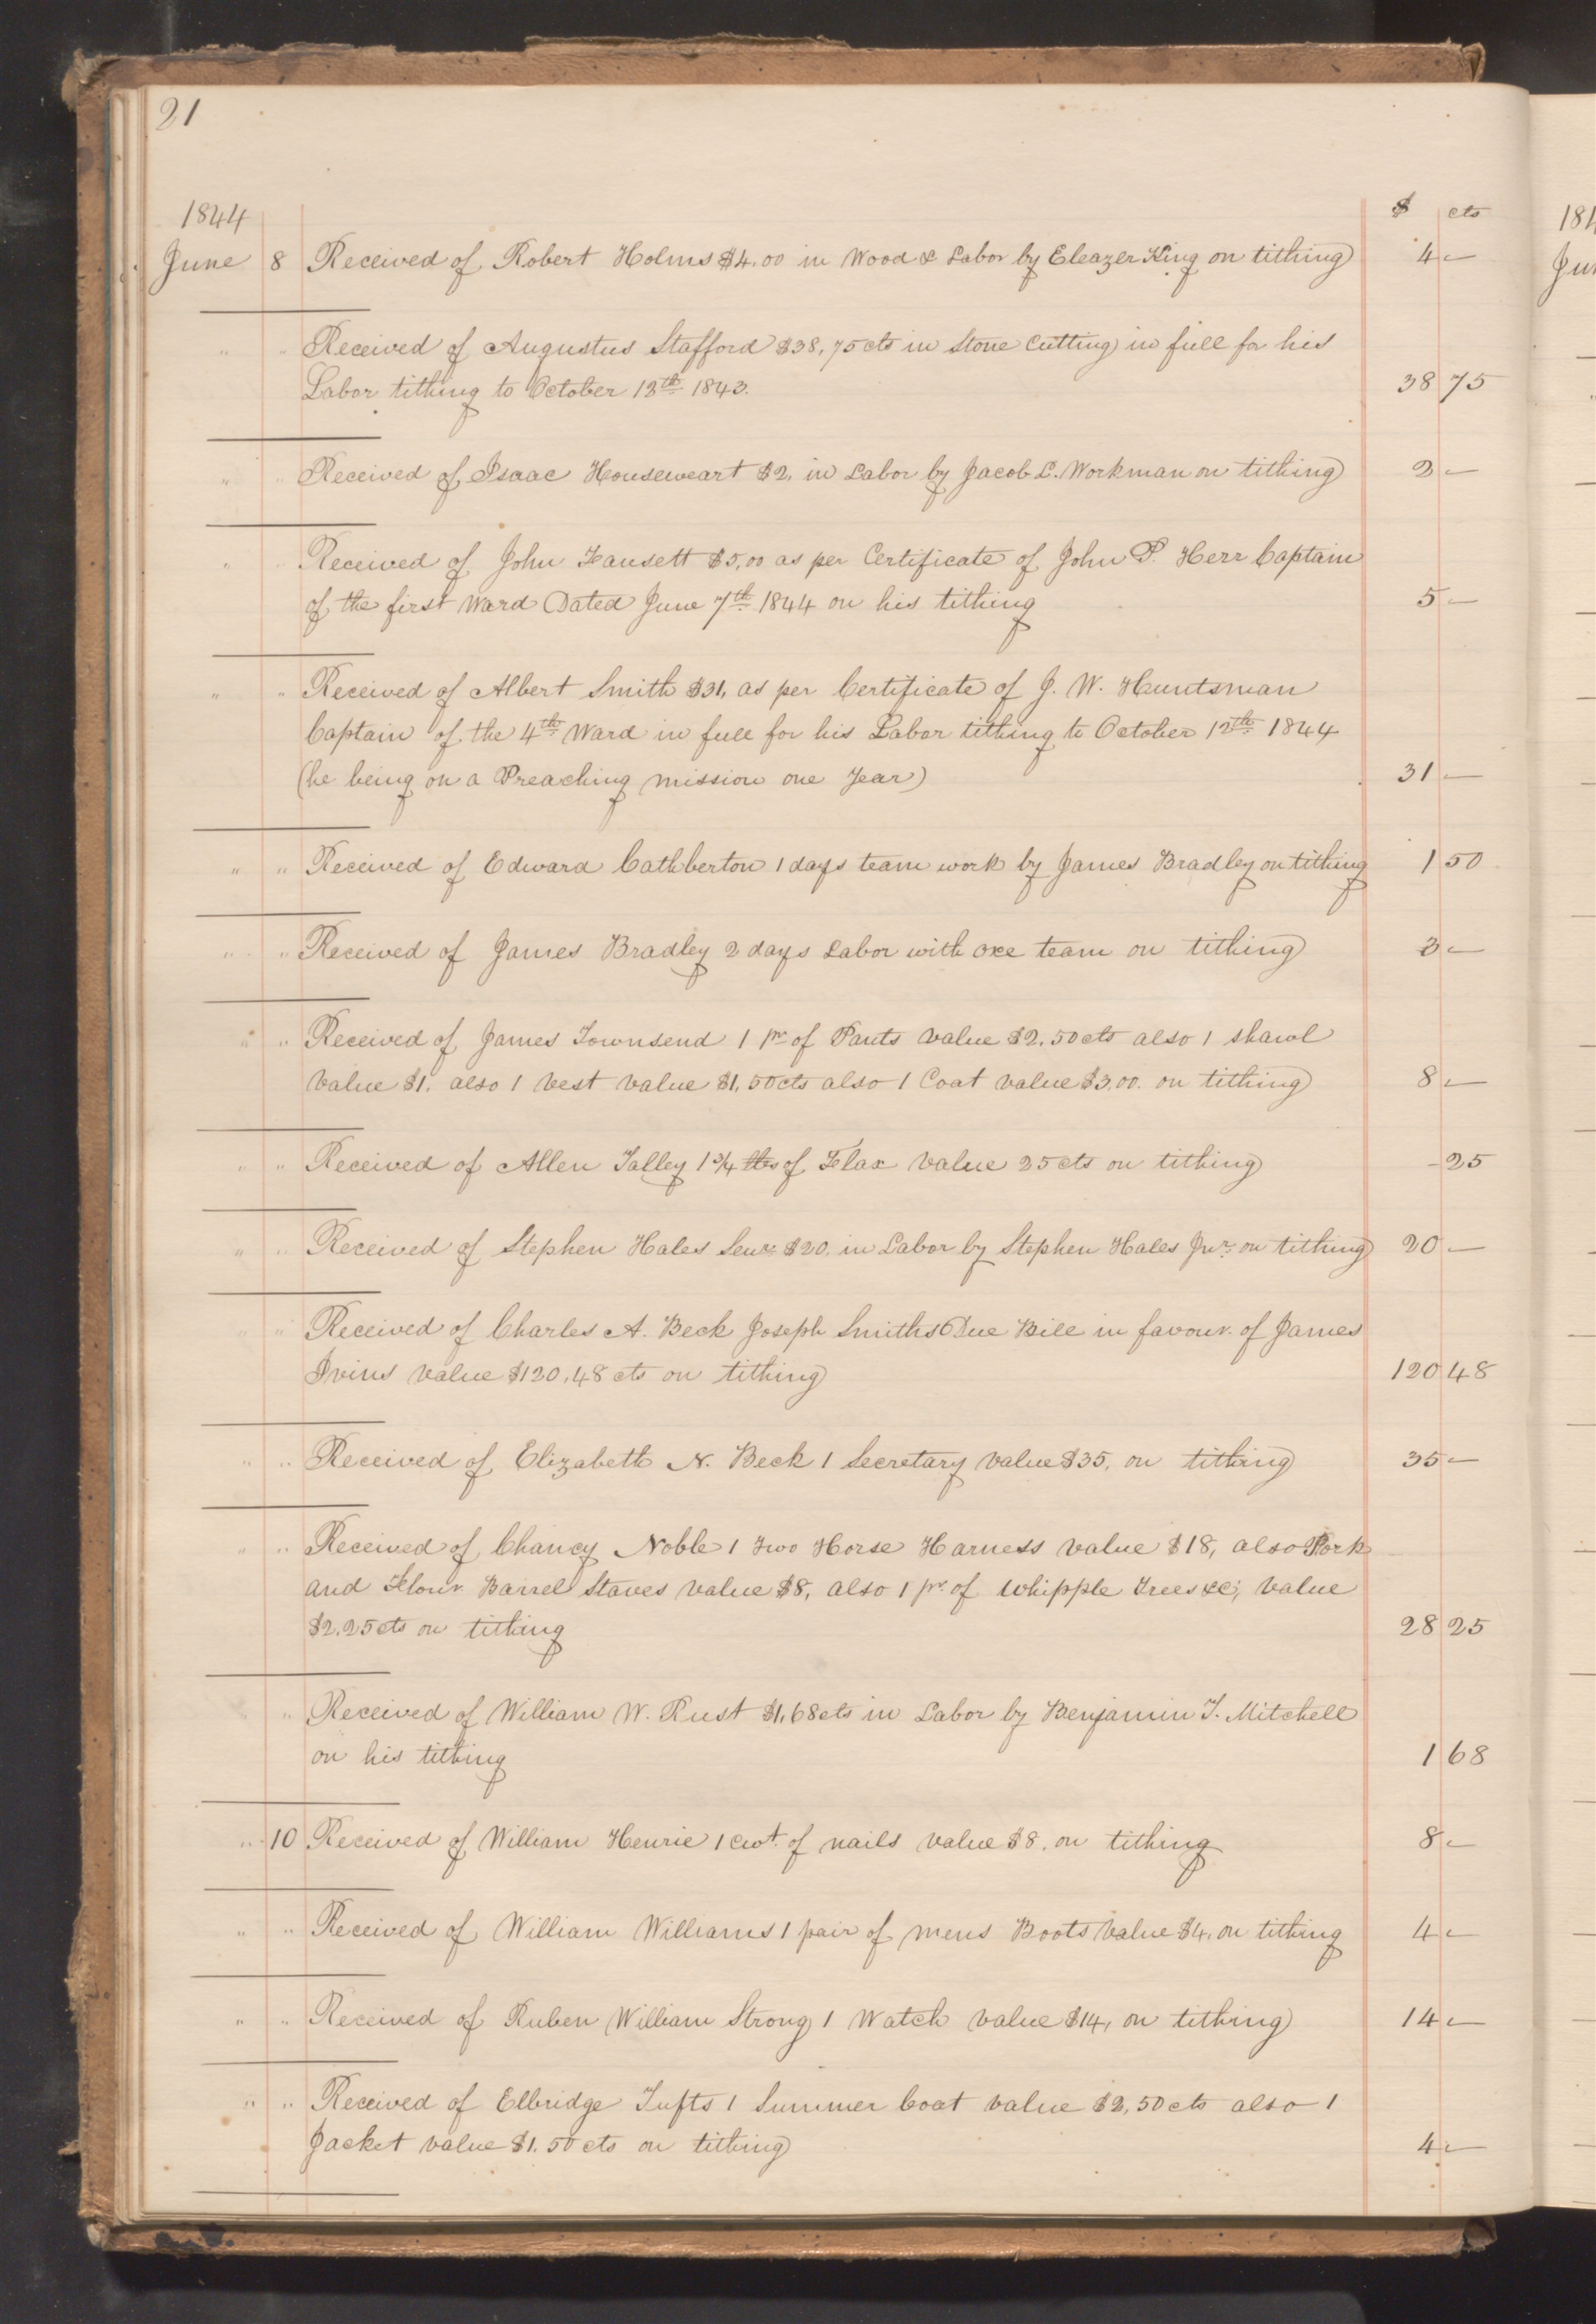 21
1844 $ cts
June 8 Received of Robert Holms $4.00 in Wood & Labor by Eleazer King on tithing 4 —
" " Received of Augustus Stafford $38,75 cts in Stone Cutting in full for his
Labor tithing to October 12th 1843. 38 75
" " Received of Isaac Houseweart $2, in Labor by Jacob L. Workman on tithing 2 —
" " Received of John Fausett $5,00 as per Certificate of John P. Herr Captain
of the first Ward Dated June 7th 1844 on his tithing 5 —
" " Received of Albert Smith $31, as per Certificate of J. W. Huntsman
Captain of the 4th Ward in full for his Labor tithing to October 12th 1844
(he being on a Preaching mission one Year) 31 —
" " Received of Edward Cathberton 1 days team work by James Bradley on tithing 1 50
" " Received of James Bradley 2 days Labor with oxe team on tithing 3 —
" " Received of James Townsend 1 pr of Pants value $2.50 cts also 1 shawl
value $1. also 1 vest value $1,50 cts also 1 Coat value $3,00. on tithing 8 —
" " Received of Allen Talley 1 3/4 lbs of Flax value 25 cts on tithing - 25
" " Received of Stephen Hales Senr. $20. in Labor by Stephen Hales Jnr. on tithing 20 —
" " Received of Charles A. Beck Joseph Smiths Due Bill in favour of James
Ivins value $120,48 cts on tithing 120 48
" " Received of Elizabeth N. Beck 1 Secretary value $35, on tithing 35 —
" " Received of Chancy Noble 1 Two Horse Harness value $18, also Pork
and Flour Barrel Staves value $8, also 1 pr. of Whipple Trees &c; value
$2.25 cts on tithing 28 25
" " Received of William W. Rust $1,68 cts in Labor by Benjamin T. Mitchell
on his tithing 1 68
" 10 Received of William Henrie 1 cwt. of nails value $8. on tithing 8 —
" " Received of William Williams 1 pair of mens Boots value $4, on tithing 4 —
" " Received of Ruben William Strong 1 Watch value $14, on tithing 14 —
" " Received of Elbridge Tufts 1 Summer Coat value $2,50 cts also 1
Jacket value $1.50 cts on tithing 4 —